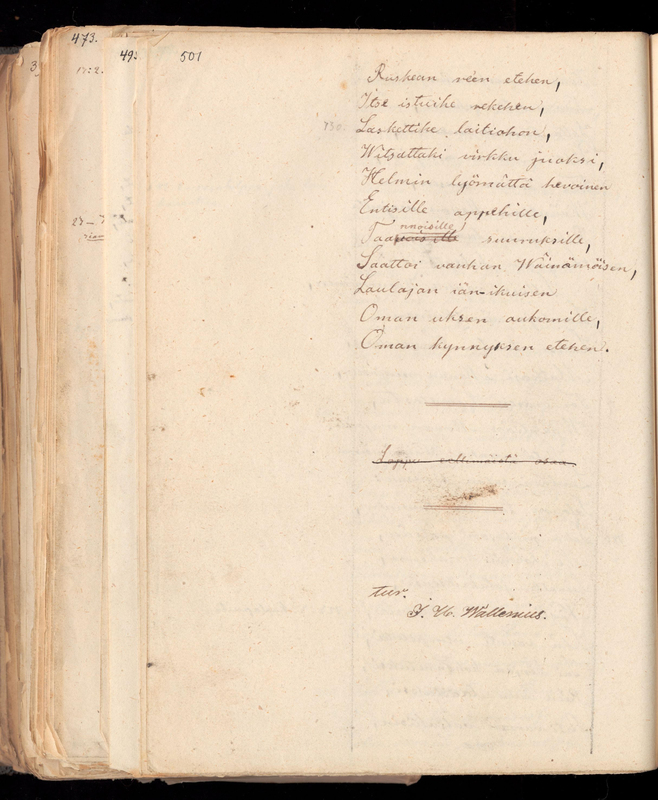 473.
49
501
3
17:2.
Ruskean reen etehen,
Itse istuihe rekehen,
730.
Laskettihe laitiohon,
Witsattaki virkku juoksi,
Helmin lyömättä hevoinen
Entisille appehille,
nnoisille
Taa suuruksille,
Saattoi vanhan Wäinämöisen,
Laulajan iän-ikuisen
Oman uksen aukomille,
Oman kynnyksen etehen.
Loppu osaa
23-
tur.
Wallenius.